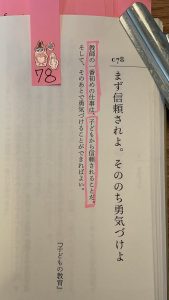 078
まず信頼されよ。そののち勇気づけよ
教師の一番初めの仕事は、子どもから信頼されることだ。
そして、そのあとで勇気づけることができればよい。
『子どもの教育』
78